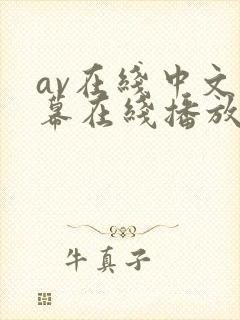 av在綫中文
幕在綫播放
牛真子